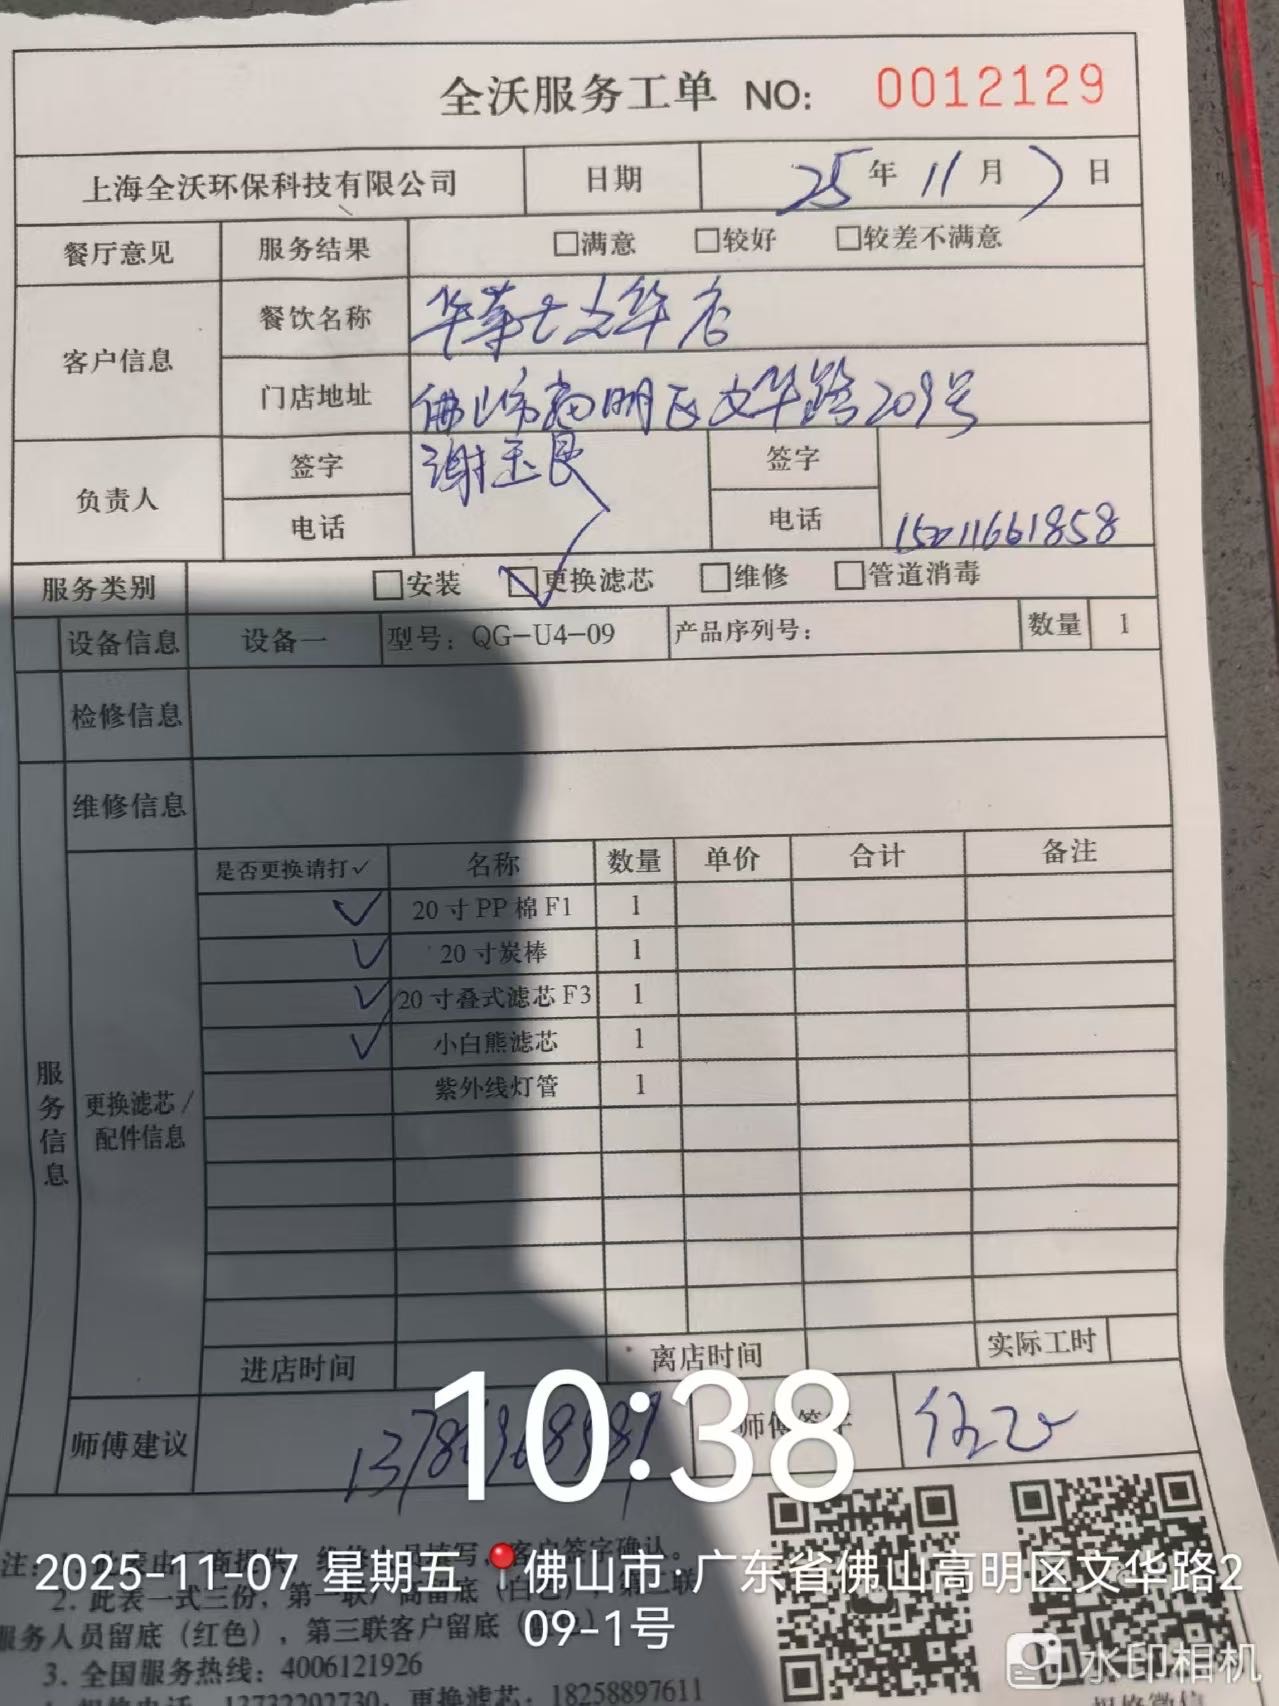 全沃服务工单 NO: 0012129
上海全沃环保科技有限公司 日期 25年11月7日
餐厅意见 服务结果 □满意 □较好 □较差不满意
客户信息 餐饮名称 华莱士文华店
门店地址 佛山市高明区文华路209号
负责人 签字 谢玉良 签字
电话 电话 15011661858
服务类别 □安装 ☑更换滤芯 □维修 □管道消毒
设备信息 设备一 型号：QG-U4-09 产品序列号： 数量 1
检修信息
维修信息
服务信息
更换滤芯/配件信息
是否更换请打✓ 名称 数量 单价 合计 备注
✓ 20寸PP棉F1 1
✓ 20寸炭棒 1
✓ 20寸叠式滤芯F3 1
✓ 小白熊滤芯 1
紫外线灯管 1
进店时间 离店时间 实际工时
师傅建议 师傅签字
10:38
2025-11-07 星期五 佛山市·广东省佛山高明区文华路2
09-1号
2. 此表一式三份，第一联厂商留底（白色），第二联
服务人员留底（红色），第三联客户留底
3. 全国服务热线：4006121926
13732292730，更换滤芯：18258897611
水印相机